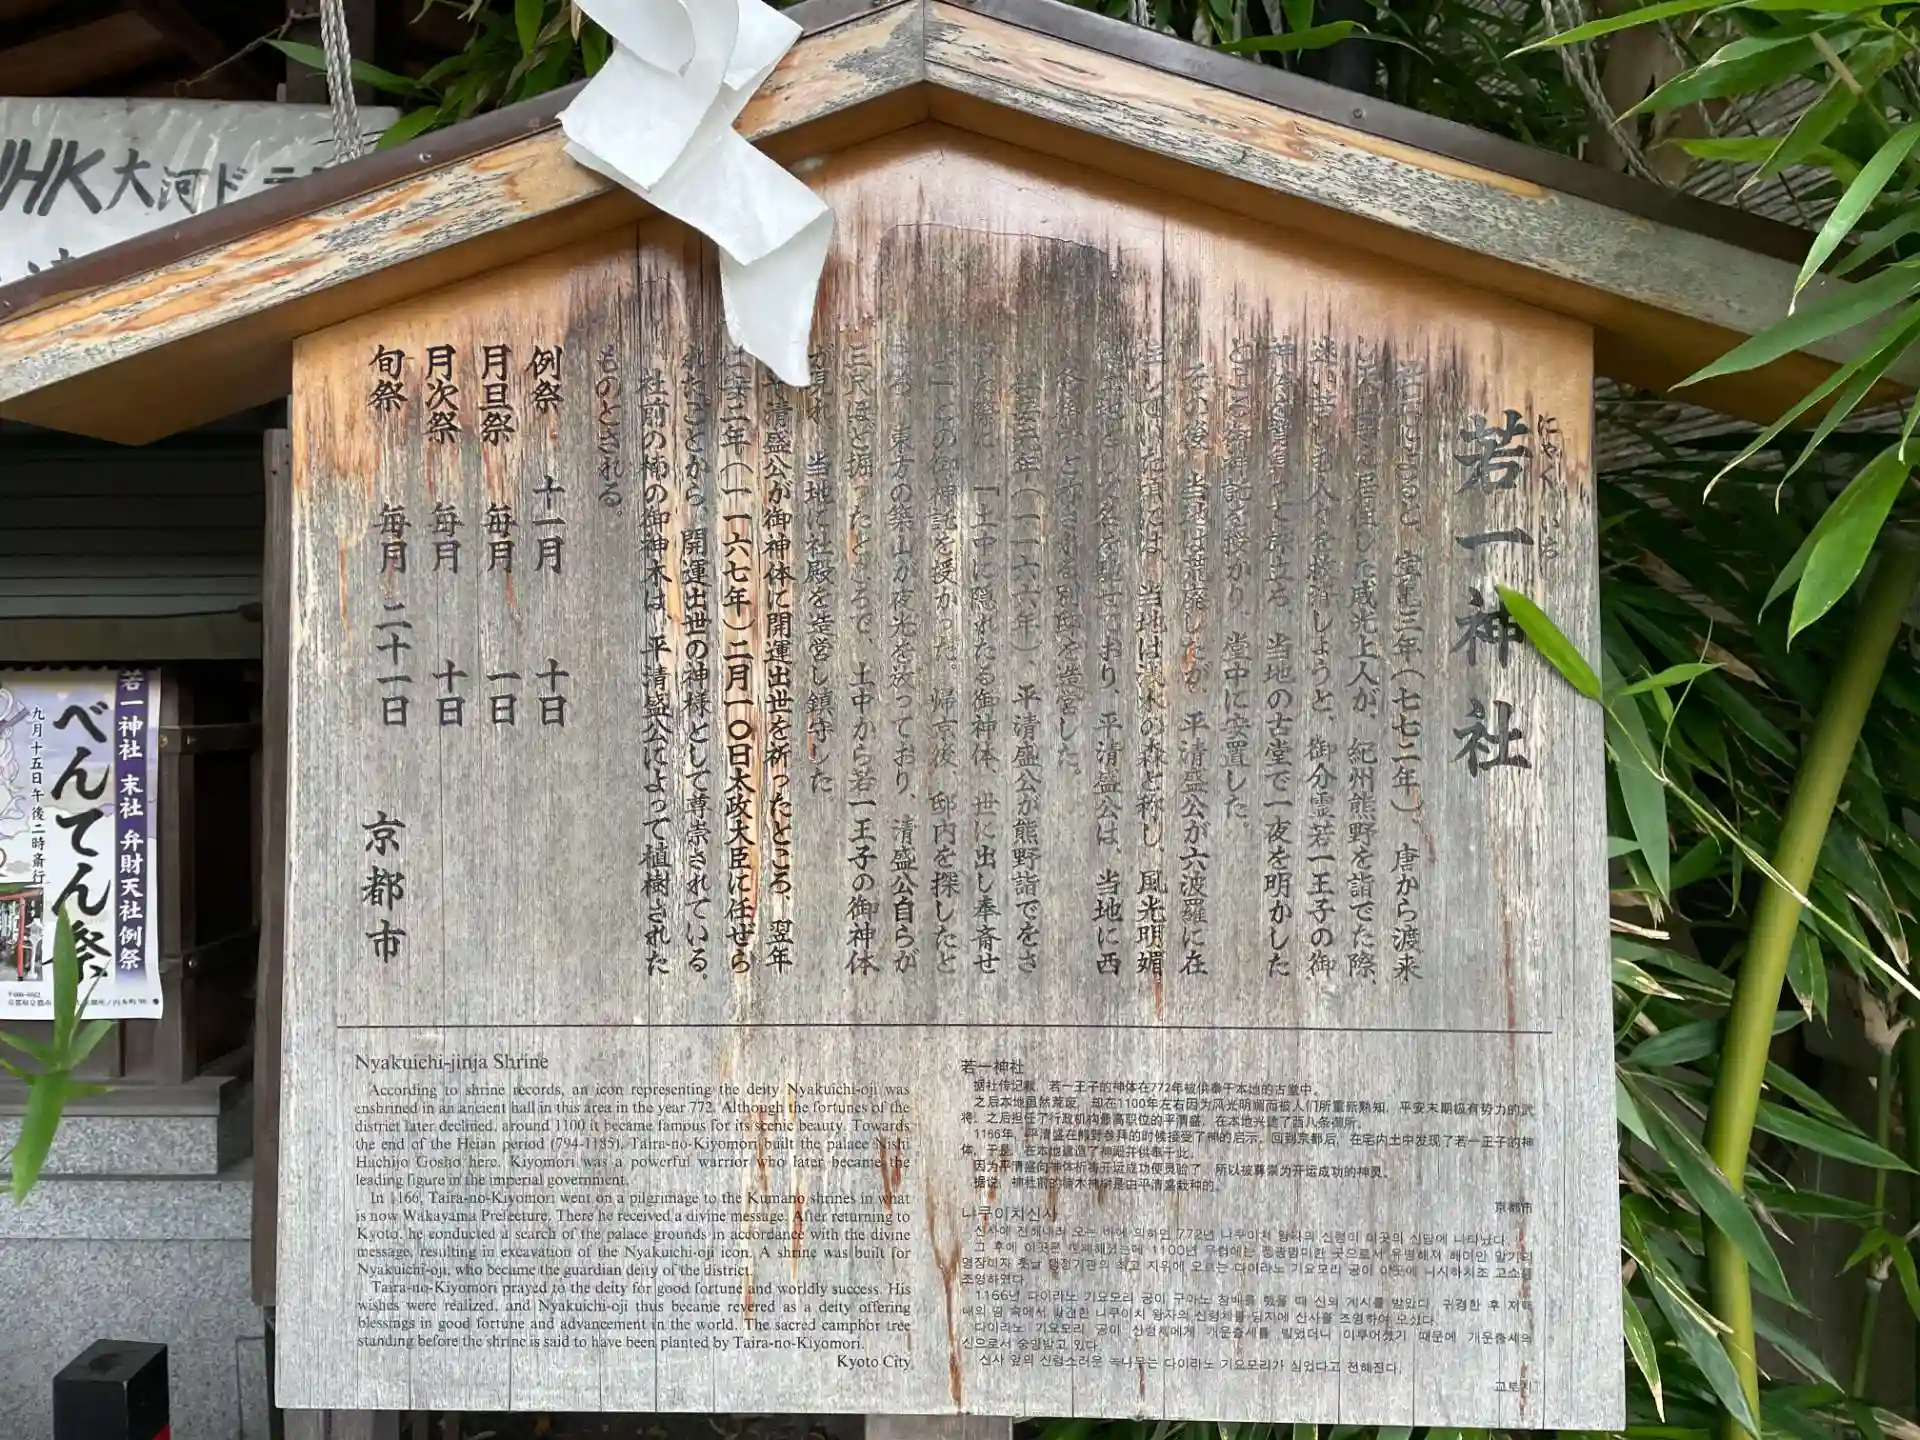 若一神社
にゃくいち
社記によると、宝亀三年(七七二年)、唐から渡来
し天王寺に居住した威光上人が、紀州熊野を詣でた際、
迷い苦しむ人々を救済しようと、御分霊若一王子の御
ところ御神託を授かり、堂中に安置した。
その後、当地は荒廃したが、平清盛公が六波羅に在
住していた頃には、当地は浅水の森と称し、風光明媚
平清盛公は、当地に西
を造営した。
年(一一六六年)、平清盛公が熊野詣でをさ
た際に、「土中に隠れたる御神体、世に出し奉斎せ
よ」との御神託を授かった。帰京後、邸内を探したと
東方の築山が夜光を放っており、清盛公自らが
三尺ほど掘ったところで、土中から若一王子の御神体
が現れ、当地に社殿を造営し鎮守した
清盛公が御神体に開運出世を祈ったところ、翌年
仁安二年(一一六七年)二月一〇日太政大臣に任ぜら
れたことから、開運出世の神様として尊崇されている。
社前の楠の御神木は、平清盛公によって植樹された
ものとされる。
例祭 十一月 十日
月旦祭 毎月 一日
月次祭 毎月 十日
旬祭 毎月 二十一日
京都市
Nyakuichi-jinja Shrine
According to shrine records, an icon representing the deity Nyakuichi-oji was
enshrined in an ancient hall in this area in the year 772. Although the fortunes of the
district later declined, around 1100 it became famous for its scenic beauty. Towards
the end of the Heian period (794-1185), Taira-no-Kiyomori built the palace Nishi
Hachijo Gosho here. Kiyomori was a powerful warrior who later became the
leading figure in the imperial government.
In 1166, Taira-no-Kiyomori went on a pilgrimage to the Kumano shrines in what
is now Wakayama Prefecture. There he received a divine message. After returning to
Kyoto, he conducted a search of the palace grounds in accordance with the divine
message, resulting in excavation of the Nyakuichi-oji icon. A shrine was built for
Nyakuichi-oji, who became the guardian deity of the district.
Taira-no-Kiyomori prayed to the deity for good fortune and worldly success. His
wishes were realized, and Nyakuichi-oji thus became revered as a deity offering
blessings in good fortune and advancement in the world. The sacred camphor tree
standing before the shrine is said to have been planted by Taira-no-Kiyomori.
Kyoto City
若一神社
据社传记载，若一王子的神体在772年被供奉于本地的古堂中。
之后本地虽然荒废，却在1100年左右因为风光明媚而被人们所重新熟知，平安末期极有势力的武
将、之后担任了行政机构最高职位的平清盛，在本地兴建了西八条御所。
1166年，平清盛在熊野参拜的时候接受了神的启示。回到京都后，在宅内土中发现了若一王子的神
体，于是，在本地建造了神殿并供奉于此。
因为平清盛向神体祈祷开运成功便灵验了，所以被尊崇为开运成功的神灵。
据说，神社前的楠木神树是由平清盛栽种的。
京都市
냐쿠이치신사
신사에 전해내려 오는 바에 의하면 772년 냐쿠이치 왕자의 신령이 이곳의 신당에 나타났다.
그 후에 이곳은 황폐해졌는데 1100년 무렵에는 풍광명미한 곳으로서 유명해져 헤이안 말기의
명장이자 훗날 행정기관의 최고 지위에 오르는 다이라노 기요모리 공이 이곳에 니시하치조 고쇼를
조영하였다.
1166년 다이라노 기요모리 공이 구마노 참배를 했을 때 신의 계시를 받았다. 귀경한 후 저택
내의 땅 속에서 발견한 냐쿠이치 왕자의 신령체를 당지에 신사를 조영하여 모셨다.
다이라노 기요모리 공이 신령체에게 개운출세를 빌었더니 이루어졌기 때문에 개운출세의
신으로서 숭앙받고 있다.
신사 앞의 신령스러운 녹나무는 다이라노 기요모리가 심었다고 전해진다.
교토시
NHK大河ドラ
若一神社 末社 弁財天社例祭
べんてん祭
九月十五日午後二時斎行